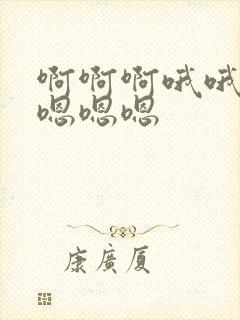 啊啊啊哦哦
嗯嗯嗯
康廣厦